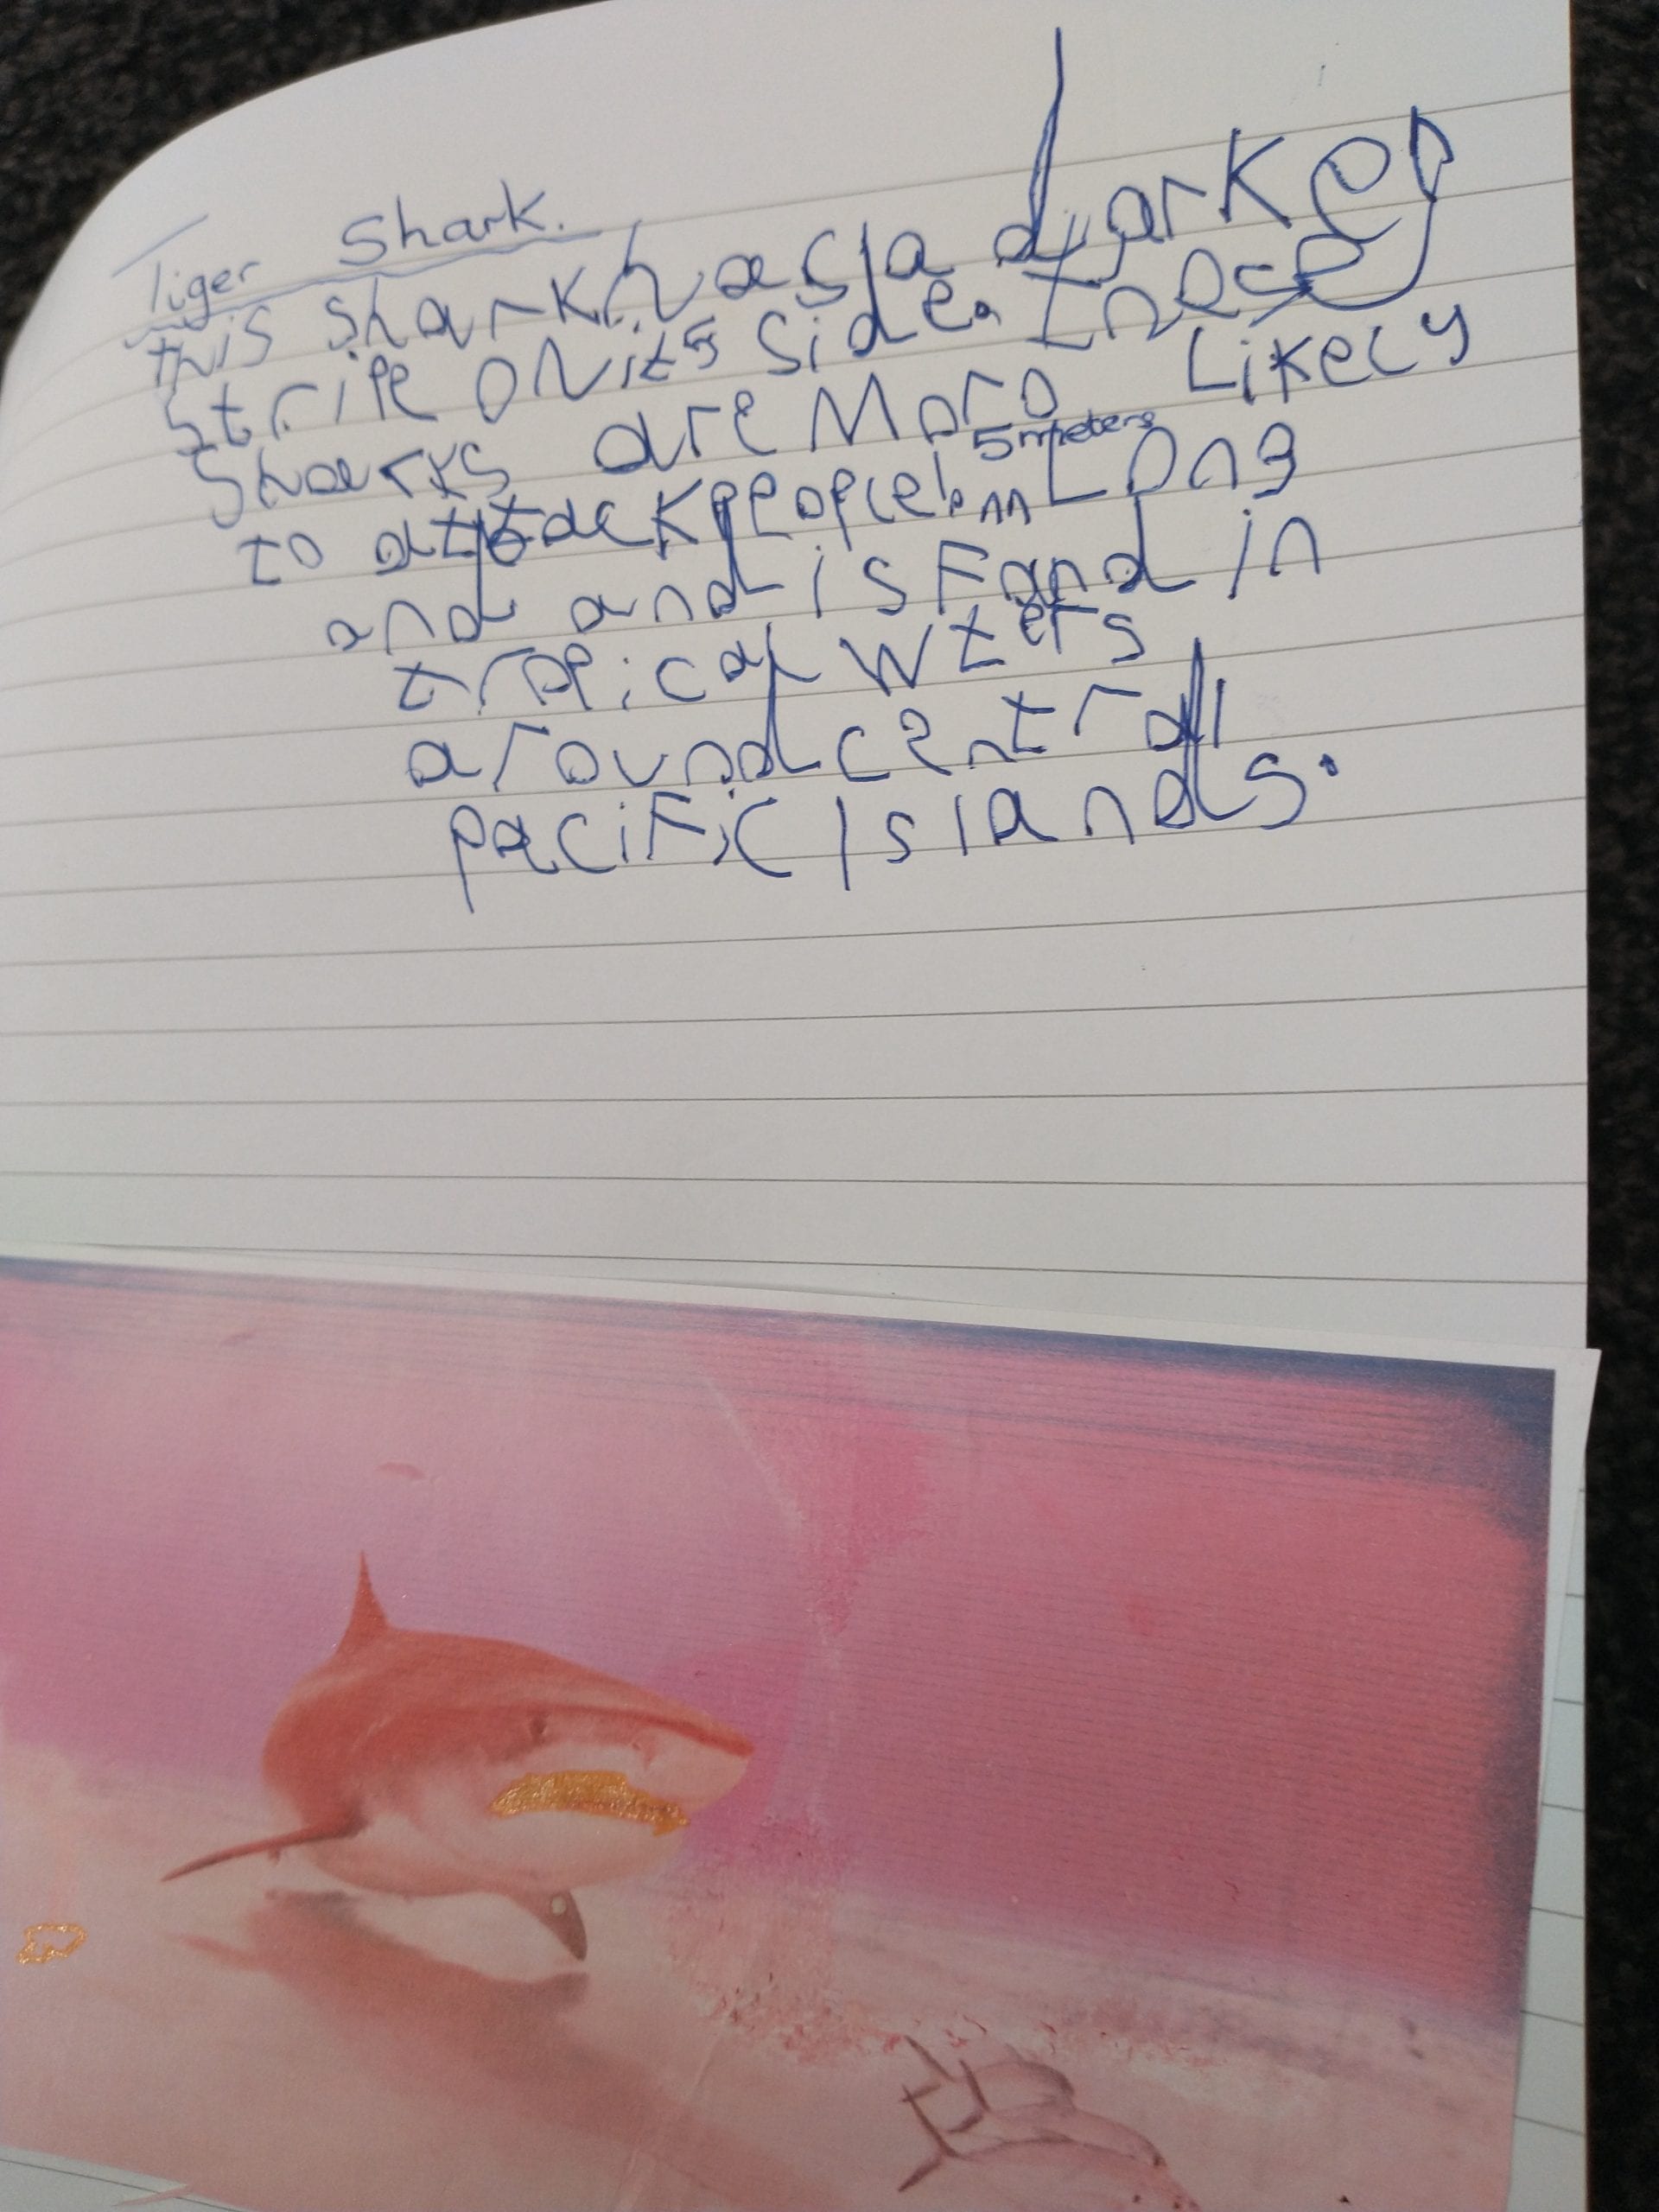 Tiger Shark.
this shark has a darker
stripe ON its side. these
Sharks are More Likely
to attack people! 5 meters Long
and and is Fand in
tropical wters
around central
pacific Islands.